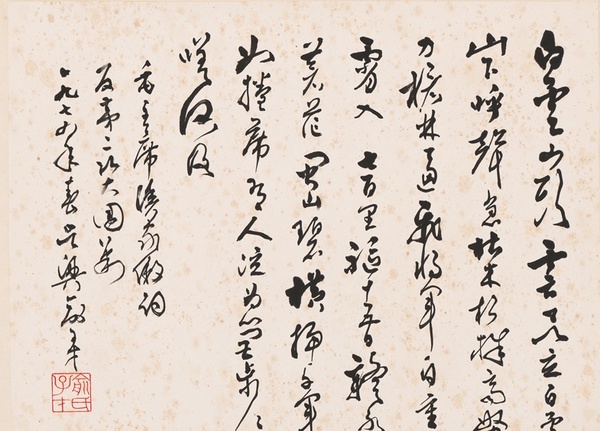 白雲山頭雲欲立白雲
山下呼聲急枯木朽株齊努
力槍林逼飛將軍自重
霄入七百里驅十五日贛水
蒼茫閩山碧橫掃千軍
如捲席有人泣為營步步
嗟何及
毛主席漁家傲詞
反第二次大圍剿
一九七六年春吳興俞子才
俞氏子才